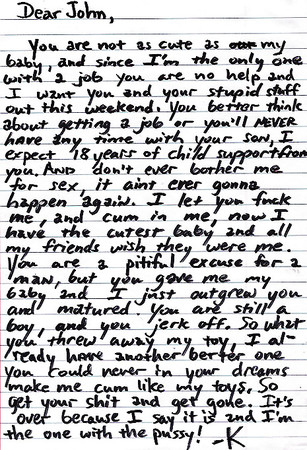 Dear John,
You are not as cute as my
baby, and since I'm the only one
with a job you are no help and
I want you and your stupid stuff
out this weekend. You better think
about getting a job or you'll NEVER
have any time with your son, I
expect 18 years of child support from
you. AND don't ever bother me
for sex, it aint ever gonna
happen again. I let you fuck
me, and cum in me, now I
have the cutest baby and all
my friends wish they were me.
You are a pitiful excuse for a
man, but you gave me my
baby and I just outgrew you
and matured. You are still a
boy, and you jerk off. So what
you threw away my toy, I al-
ready have another better one
you could never in your dreams
make me cum like my toys. So
get your shit and get gone. It's
over because I say it is and I'm
the one with the pussy! -K